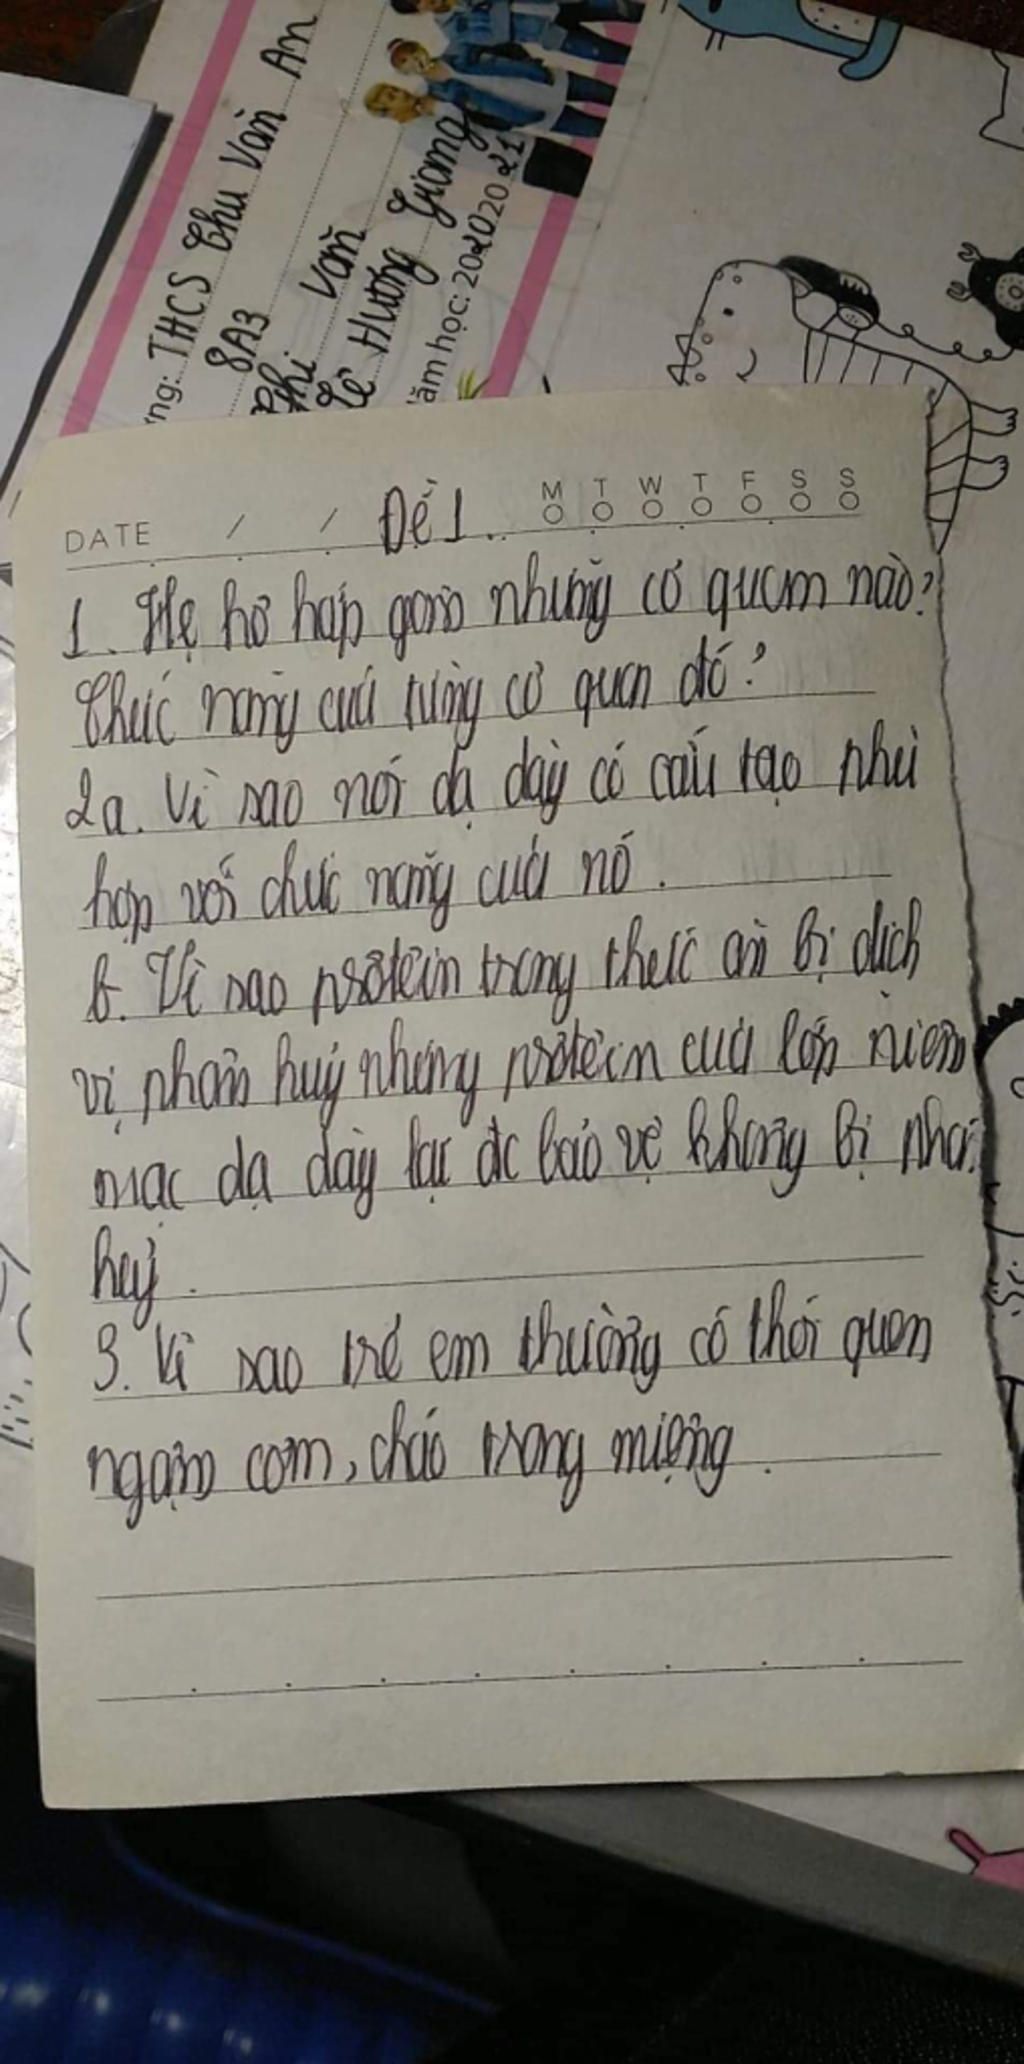 ng: THCS Chu Văn An
8A3
Phi Văn
Lê Hương Giang
ăm học: 20 2020 21
DATE / / Đề 1
M T W T F S S
1. Hệ hô hấp gồm những cơ quan nào?
Chức năng của từng cơ quan đó?
2a. Vì sao nói dạ dày có cấu tạo phù
hợp với chức năng của nó.
b. Vì sao prôtêin trong thức ăn bị dịch
vị phân huỷ nhưng prôtêin của lớp niêm
mạc dạ dày lại đc bảo vệ không bị phân
huỷ.
3. Vì sao trẻ em thường có thói quen
ngậm cơm, cháo trong miệng.